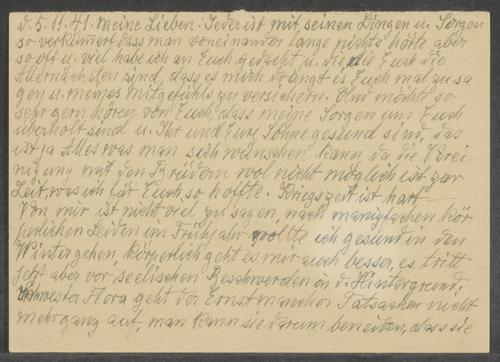 d. 5.11.41. Meine Lieben: Jeder ist mit seinen Dingen u. Sorgen
so verkümmert, dass man voneinander lange nichts hörte aber
so oft u. viel hab ich an Euch gedacht u. die Euch die
Allernächsten sind, dass es mich drängt es Euch mal zu sa
gen u. meines Mitgefühls zu versichern. Und möcht so
sehr gern hören von Euch, dass meine Sorgen um Euch
überholt sind u. Ihr und Eure Söhne gesund sind, das
ist ja Alles was man sich wünschen kann, da die Verei
nigung mit den Brüdern wol nicht möglich ist zur
Zeit, was ich für Euch so hoffte. Kriegszeit ist hart
Von mir ist nicht viel zu sagen, nach manigfachen kör
perlichen Leiden im Frühjahr wollte ich gesund in den
Winter gehen, körperlich geht es mir auch besser, es tritt
jetzt aber vor seelischen Beschwerden in d. Hintergrund.
Schwester Flora geht der Ernst mancher Tatsachen nicht
mehr ganz auf, man kann sie darum beneiden, dass sie